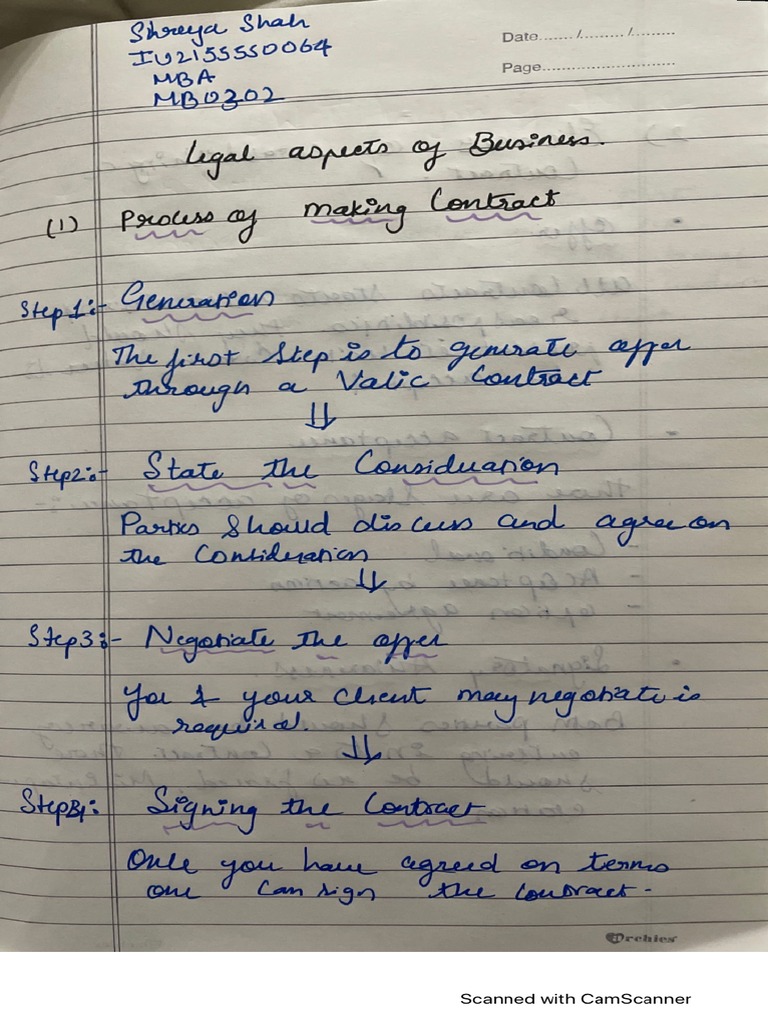 Shreya Shah
IU2155550064
MBA
MB0302
Date......./........./.........
Page...........................
Legal aspects of Business.
(1) Process of making Contract
Step 1:- Generation
The first Step is to generate offer
through a Valic Contract
⇓
Step2:- State the Consideration
Parties should discuss and agree on
the Consideration
⇓
Step3:- Negotiate the offer
You & your Client may negotiate is
required.
⇓
Step4: Signing the Contract
Once you have agreed on terms
one can sign the contract.
Archies
Scanned with CamScanner